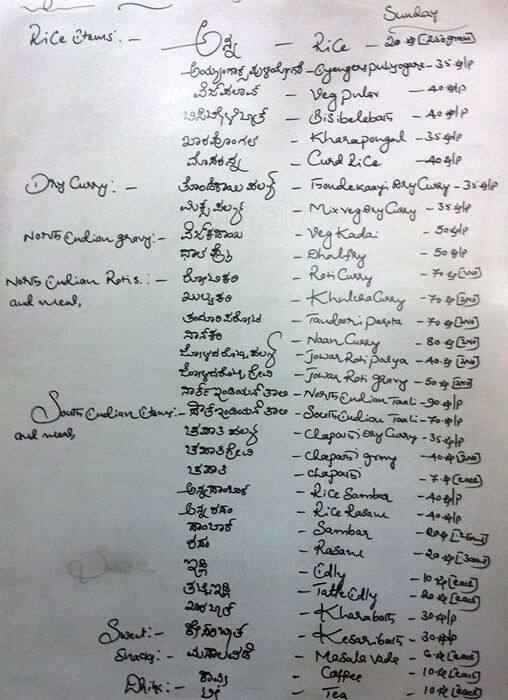 Sunday
Rice items:- ಅನ್ನ - Rice - 20 ರೂ (250 gram)
ಅಯ್ಯಂಗಾರ್ಸ್ ಪುಳಿಯೋಗರೆ - Iyengers puliyogare - 35 ರೂ/P
ವೆಜ್ ಪಲಾವ್ - Veg Pulav - 40 ರೂ/P
ಬಿಸಿಬೇಳೆಬಾತ್ - Bisibelebath - 40 ರೂ/P
ಖಾರಪೊಂಗಲ್ - Kharapongal - 35 ರೂ/P
ಮೊಸರನ್ನ - Curd Rice - 40 ರೂ/P
Dry Curry:- ತೊಂಡೆಕಾಯಿ ಪಲ್ಯ - Tondekaayi Dry Curry - 35 ರೂ/P
ಮಿಕ್ಸ್ ಪಲ್ಯ - Mix veg Dry Curry - 35 ರೂ/P
North Indian gravy:- ವೆಜ್ ಕಡಾಯಿ - Veg Kadai - 50 ರೂ/P
ದಾಲ್ ಫ್ರೈ - Dhalfry - 50 ರೂ/P
North Indian Rotis:- ರೋಟಿಕರಿ - Roti Curry - 70 ರೂ
and meal, ಖುಲ್ಚಕರಿ - Khulcha Curry - 70 ರೂ
ತಂದೂರಿ ಪರೋಟ - Tandoori Parota - 70 ರೂ
ನಾನ್ ಕರಿ - Naan Curry - 80 ರೂ
ಜೋಳದ ರೊಟ್ಟಿ ಪಲ್ಯ - Jowar Roti Palya - 40 ರೂ
ಜೋಳದ ರೊಟ್ಟಿ ಗ್ರೇವಿ - Jowar Roti gravy - 50 ರೂ
ನಾರ್ತ್ ಇಂಡಿಯನ್ ತಾಲಿ - North Indian Taali - 90 ರೂ/P
South Indian items:- ಸೌತ್ ಇಂಡಿಯನ್ ತಾಲಿ - South Indian Taali - 70 ರೂ/P
and meal, ಚಪಾತಿ ಪಲ್ಯ - Chapathi Dry Curry - 35 ರೂ/P
ಚಪಾತಿ ಗ್ರೇವಿ - Chapathi gravy - 40 ರೂ
ಚಪಾತಿ - Chapathi - 7 ರೂ (each)
ಅನ್ನ ಸಾಂಬಾರ್ - Rice Sambar - 40 ರೂ/P
ಅನ್ನ ರಸಂ - Rice Rasam - 40 ರೂ/P
ಸಾಂಬಾರ್ - Sambar - 20 ರೂ
ರಸಂ - Rasam - 20 ರೂ
ಇಡ್ಲಿ - Idly - 10 ರೂ (each)
ತಟ್ಟೆಇಡ್ಲಿ - Tatte Idly - 20 ರೂ (each)
ಖಾರಾಬಾತ್ - Kharabath - 30 ರೂ/P
Sweet:- ಕೇಸರಿಬಾತ್ - Kesaribath - 30 ರೂ/P
Snacks:- ಮಸಾಲವಡೆ - Masala vade - 6 ರೂ (each)
Drinks:- ಕಾಫಿ - Caffee - 10 ರೂ (each)
ಟೀ - Tea - 10 ರೂ (each)